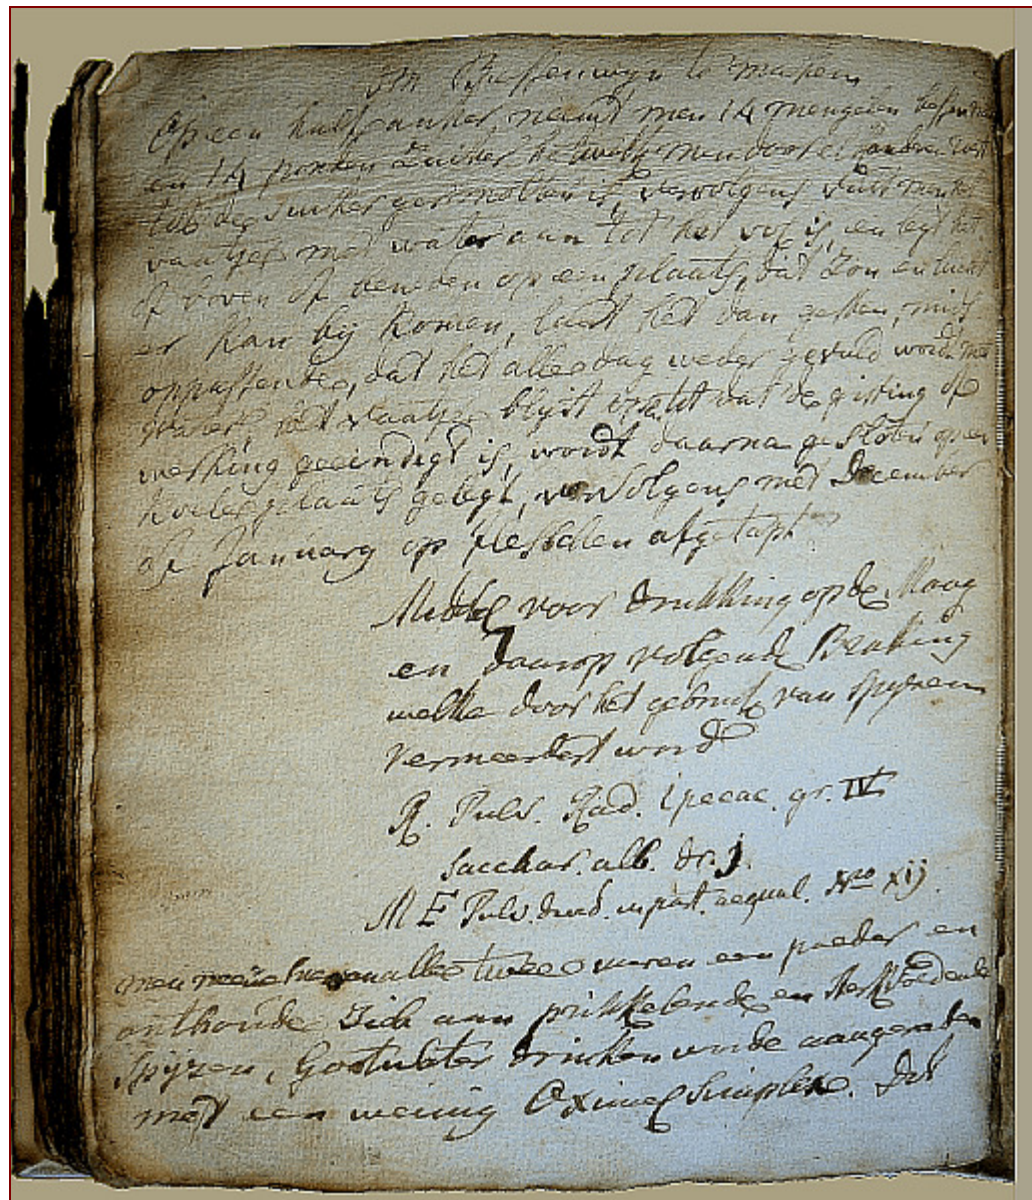 Om Bessenwyn te maken
Op een half anker neemt men 14 mengelen bessen
en 14 ponden Zuiker hetwelk men door
tot de Suiker gesmolten is, vervolgens vult men het
vaatje met water aan tot het vol is, en legt het
of boven of beneden op een plaats, dat Zon en lucht
er kan bij komen, laat het dan gesten, mits
oppassende, dat het alle dag weder gevuld wordt met
water, het vaatje blyft open tot dat de gisting of
werking geeindigt is, wordt daarna gesloten op een
koele plaats gelegt, vervolgens met December
of January op flesschen afgetapt
Middel voor drukking op de Maag
en daarop volgende Braking
welke door het gebruik van Spyzen
vermeerdert word
R. Pulv. Rad. Ipecac. gr. IV
Sacchar. alb. dr. j.
M F Pulv. divid. in part. aequal. No xij.
men neeme hiervan alle twee uuren een poeder en
onthoude Zich aan prikkelende en sterk voedende
Spyzen, Gootwater drinken worde aangeraden
met een weinig Oximel Simplex. Dit